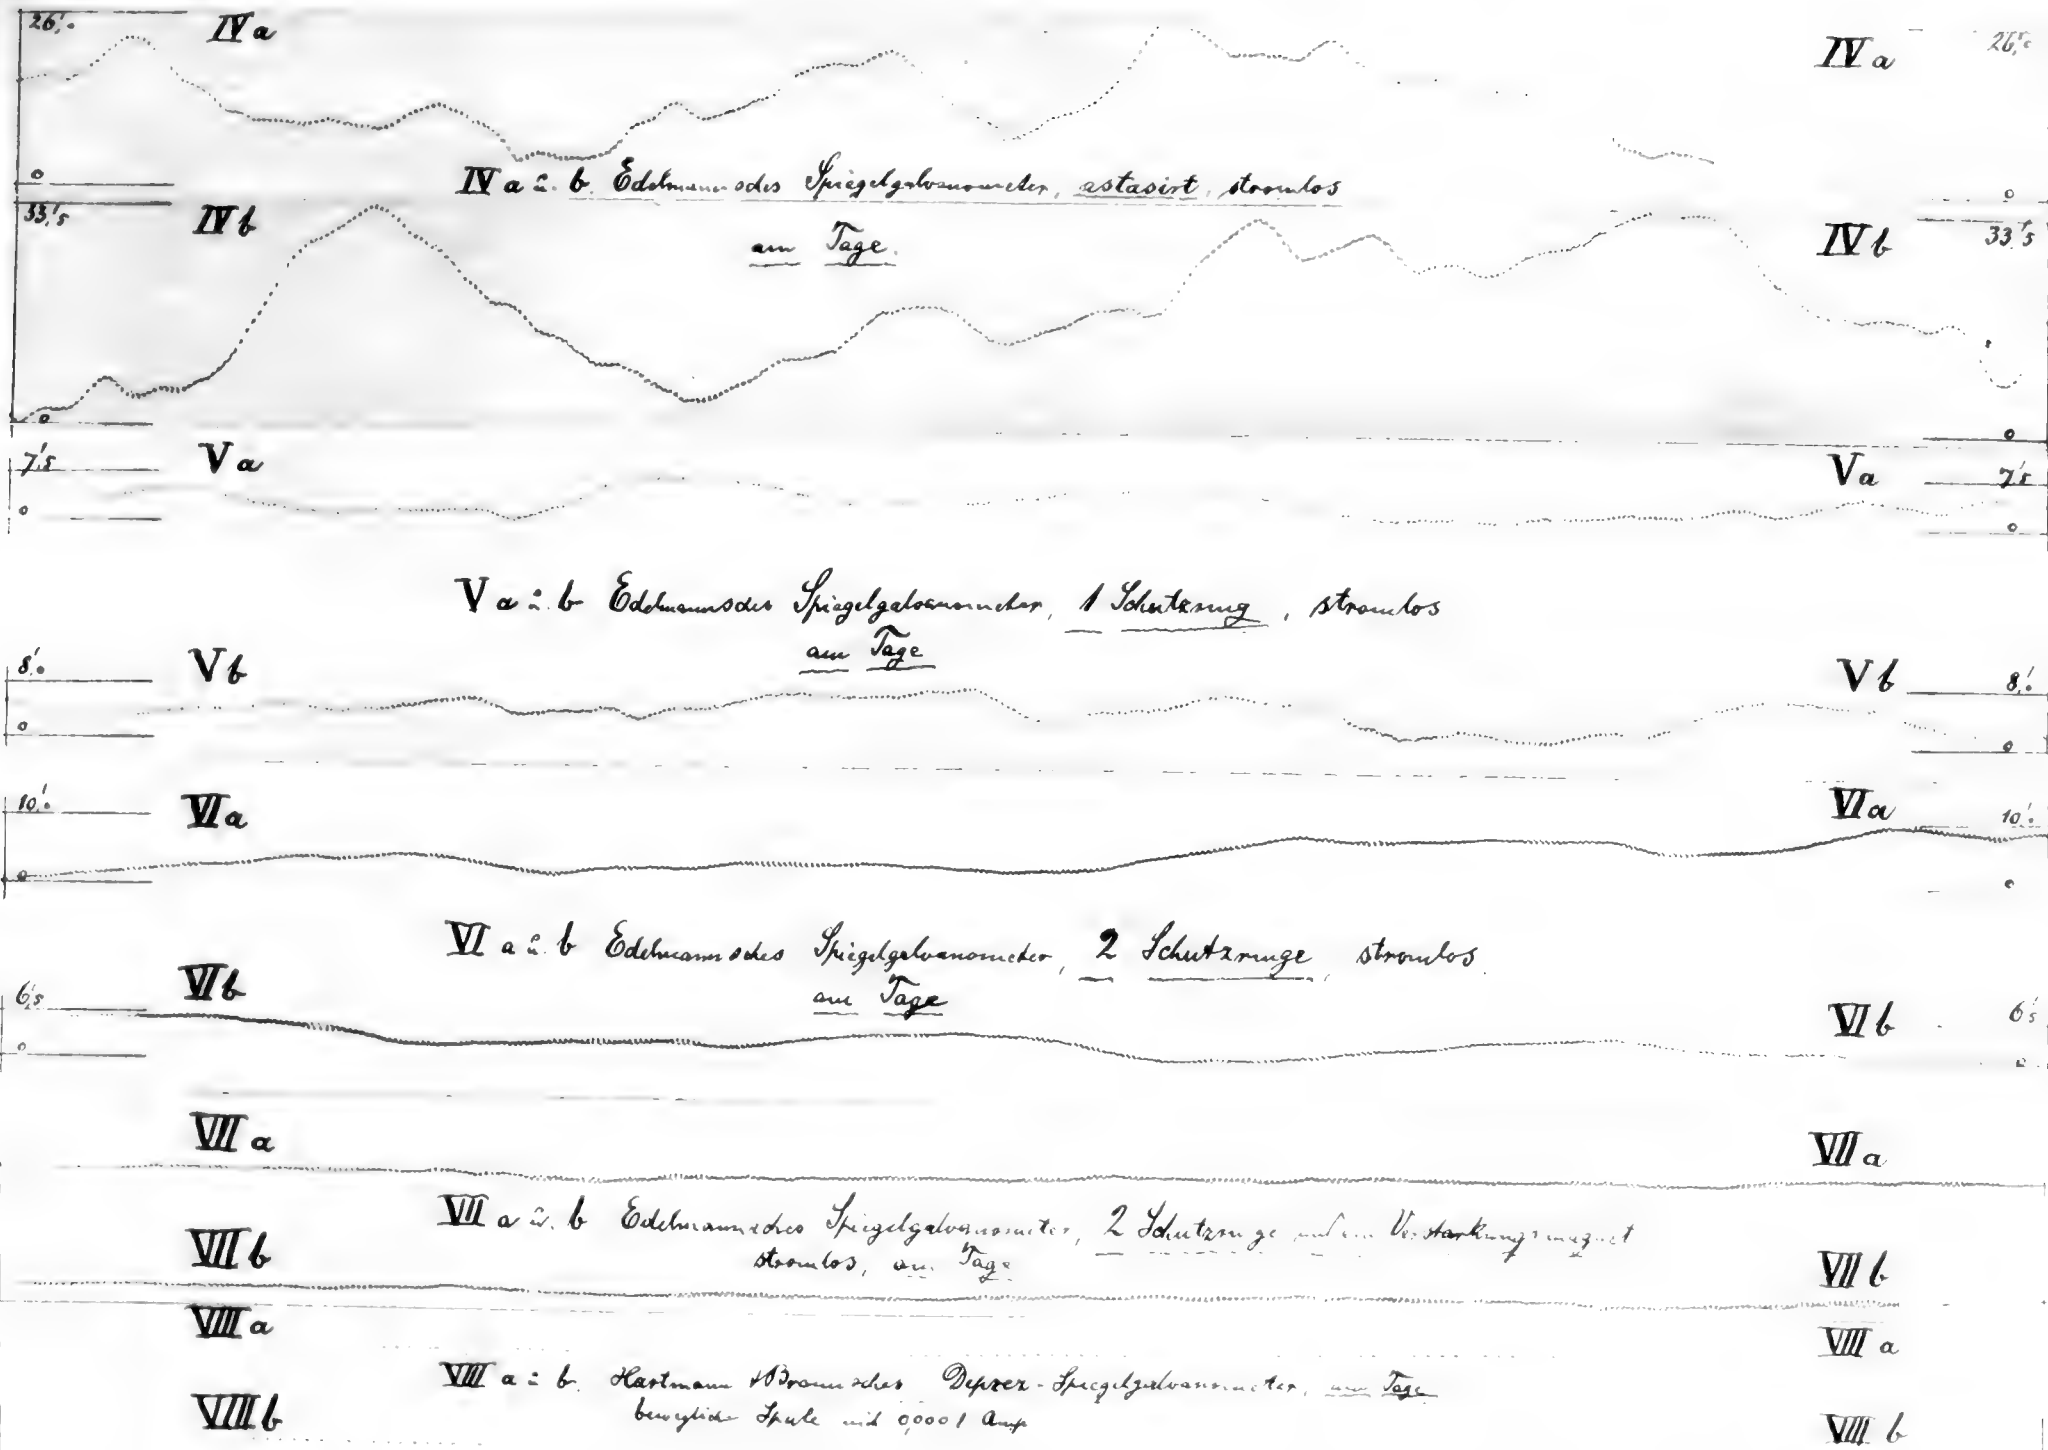 26,'0 IVa IVa 26,'0
0 IVa u. b. Edelmannsches Spiegelgalvanometer, astasirt, stromlos 0
33,'5 IVb am Tage. IVb 33,'5
0 0
7,'5 Va Va 7,'5
0 0
Va u. b Edelmannsches Spiegelgalvanometer, 1 Schutzring, stromlos
am Tage
8,'0 Vb Vb 8,'0
0 0
10,'0 VIa VIa 10,'0
0 0
VI a u. b Edelmannsches Spiegelgalvanometer, 2 Schutzringe, stromlos
6,'5 VIb am Tage VIb 6,'5
0 0
VII a VII a
VII a u. b Edelmannsches Spiegelgalvanometer, 2 Schutzringe und ein Verstärkungsmagnet
VII b stromlos, am Tage VII b
VIII a VIII a
VIII a u. b. Hartmann & Braunsches Deprez-Spiegelgalvanometer, am Tage
VIII b bewegliche Spule mit 0,0001 Amp VIII b